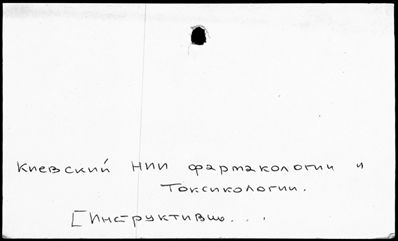 Киевский НИИ фармакологии и
Токсикологии.
[Инструктивно...